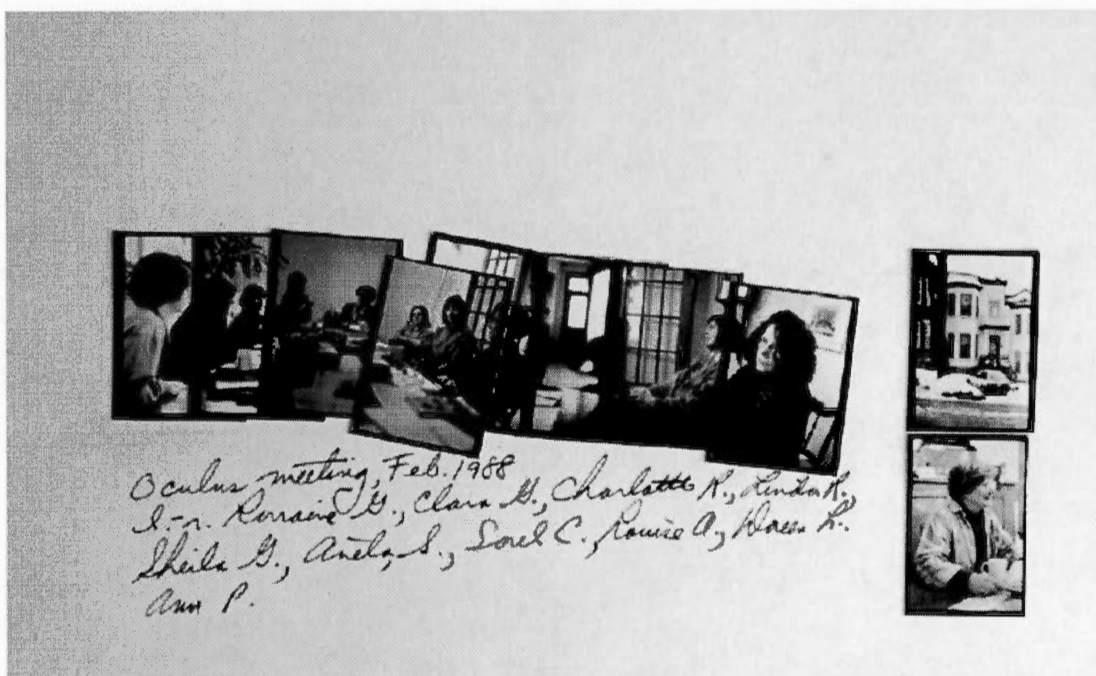 Oculus meeting, Feb. 1988
l.-r. Lorraine G., Clara G., Charlotte R., Linda R.,
Sheila G., Aneta S., Sorel C., Louise A., Doreen L.
Ann P.